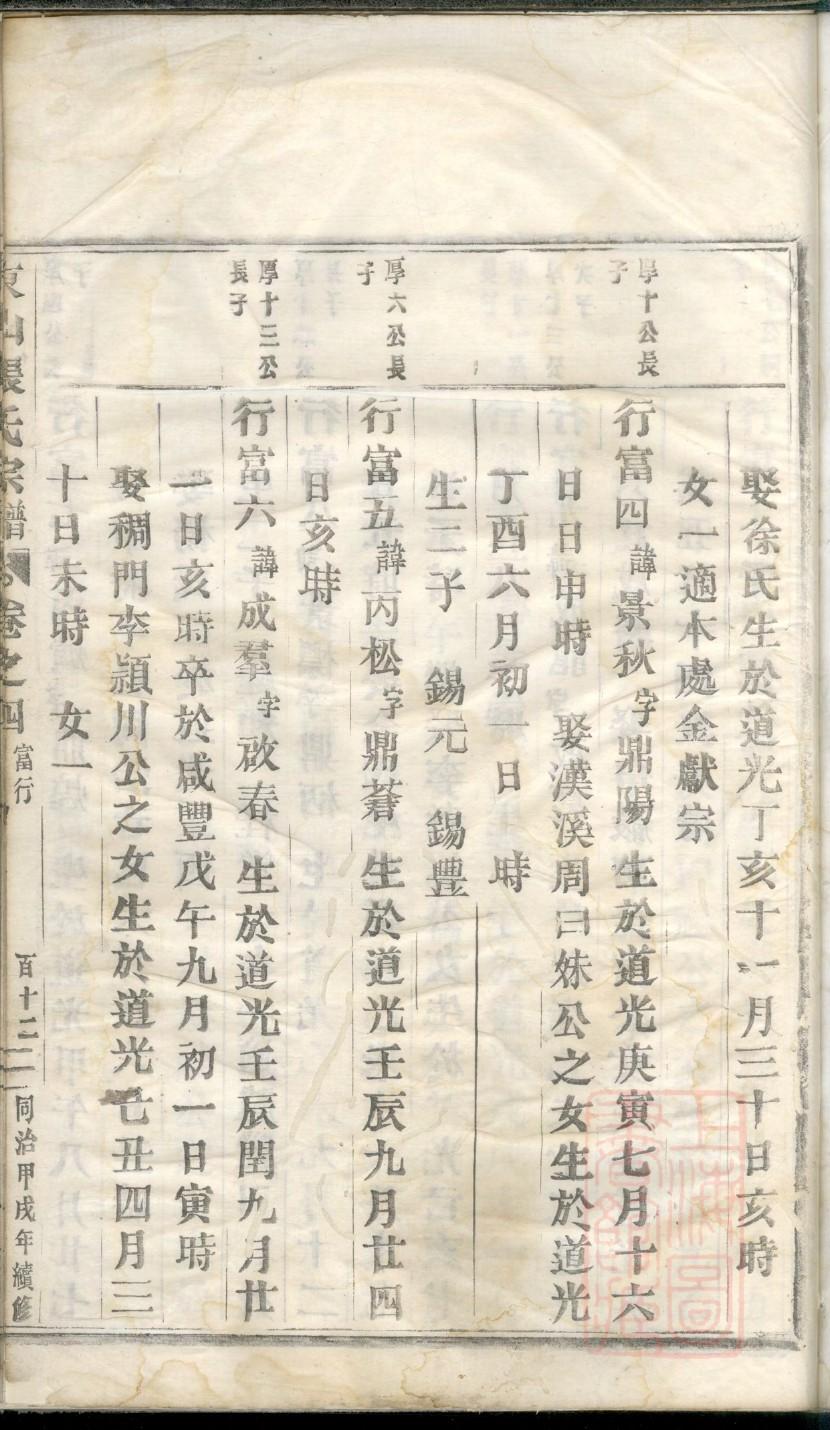 娶徐氏生於道光丁亥十一月三十日亥時
女一適本處金獻宗
厚十公長
子
行富四諱景秋字鼎陽生於道光庚寅七月十六
日日申時 娶漢溪周曰妹公之女生於道光
丁酉六月初一日 時
生二子 錫元 錫豐
厚六公長
子
行富五諱丙松字鼎蒼生於道光壬辰九月廿四
日亥時
厚十三公
長子
行富六諱成羣字啟春生於道光壬辰閏九月廿
一日亥時卒於咸豐戊午九月初一日寅時
娶稠門李潁川公之女生於道光 丑四月三
十日未時 女一
東山張氏宗譜 卷之四 富行 百十二 同治甲戌年續修
上海圖